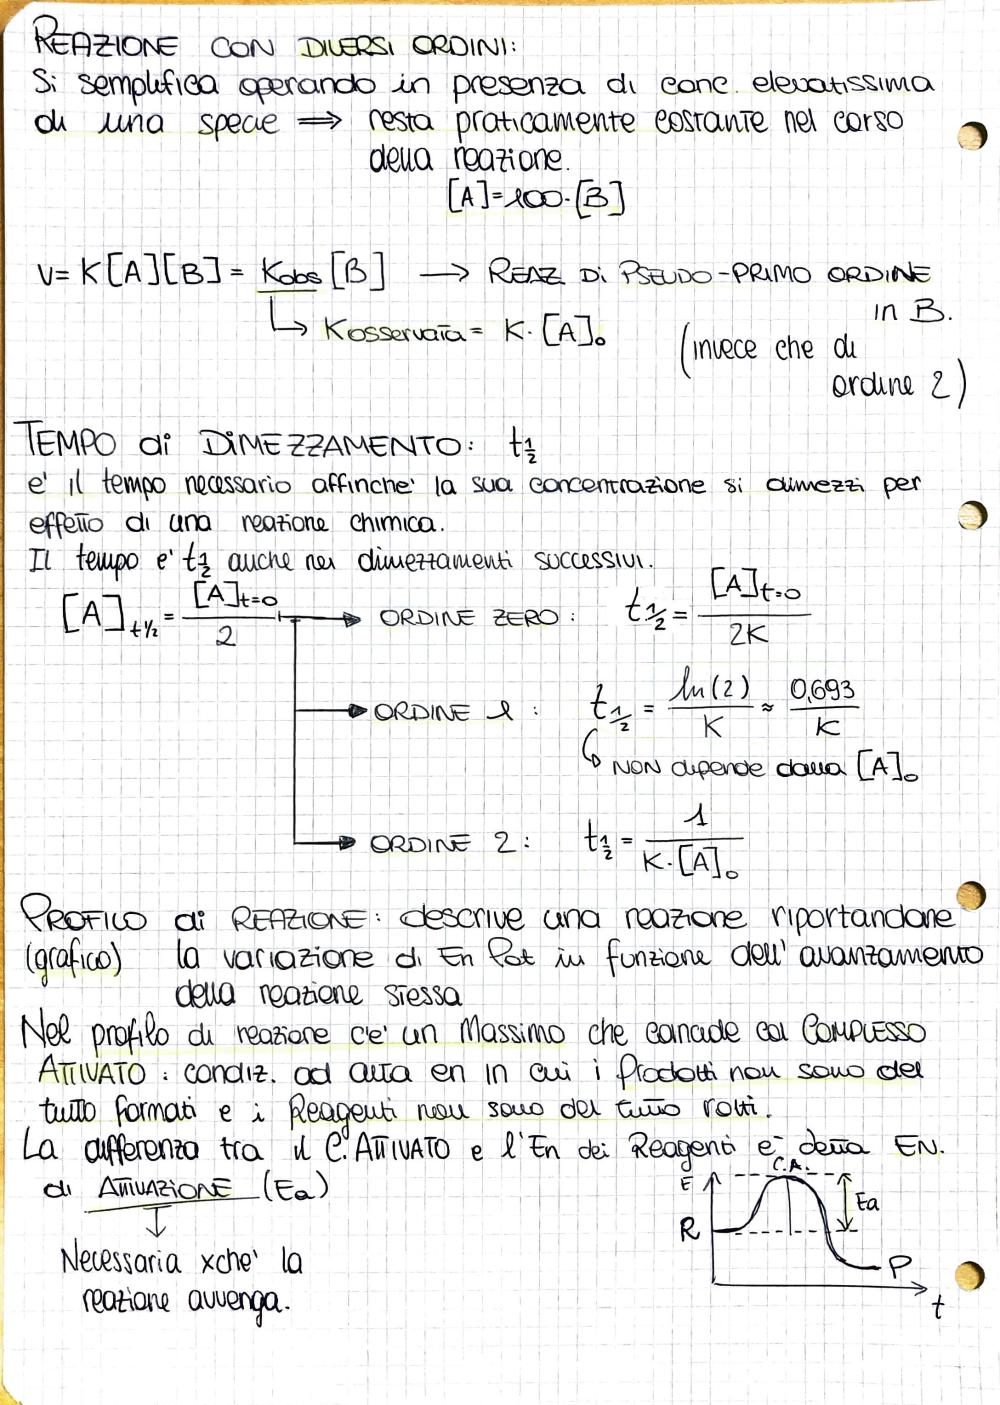 REAZIONE CON DIVERSI ORDINI:
Si semplifica operando in presenza di conc. elevatissima
di una specie ⟹ resta praticamente costante nel corso
della reazione.
[A]=100·[B]
V= K[A][B] = Kobs [B] → REAZ Di PSEUDO-PRIMO ORDINE
in B.
↳ Kosservata = K·[A]₀
(invece che di
ordine 2)
TEMPO di DIMEZZAMENTO: t½
e' il tempo necessario affinche' la sua concentrazione si dimezzi per
effetto di una reazione chimica.
Il tempo e' t½ auche nei dimezzamenti successivi.
[A]t½ = [A]t=0 / 2 → ORDINE ZERO: t½ = [A]t=0 / 2K
→ ORDINE 1: t½ = ln(2)/K ≈ 0,693/K
↳ NON dipende dalla [A]₀
→ ORDINE 2: t½ = 1 / K·[A]₀
PROFILO di REAZIONE: descrive una reazione riportandone
(grafico) la variazione di En Pot in funzione dell'avanzamento
della reazione stessa
Nel profilo di reazione c'e' un Massimo che coincide col COMPLESSO
ATTIVATO: condiz. ad alta en in cui i Prodotti non sono del
tutto formati e i Reagenti non sono del tutto rotti.
La differenza tra il C.ATTIVATO e l'En dei Reagenti e' detta EN.
di ATTIVAZIONE (Ea)
↓
Necessaria xche' la
reazione avvenga.
C.A.
E
Ea
R
P
t